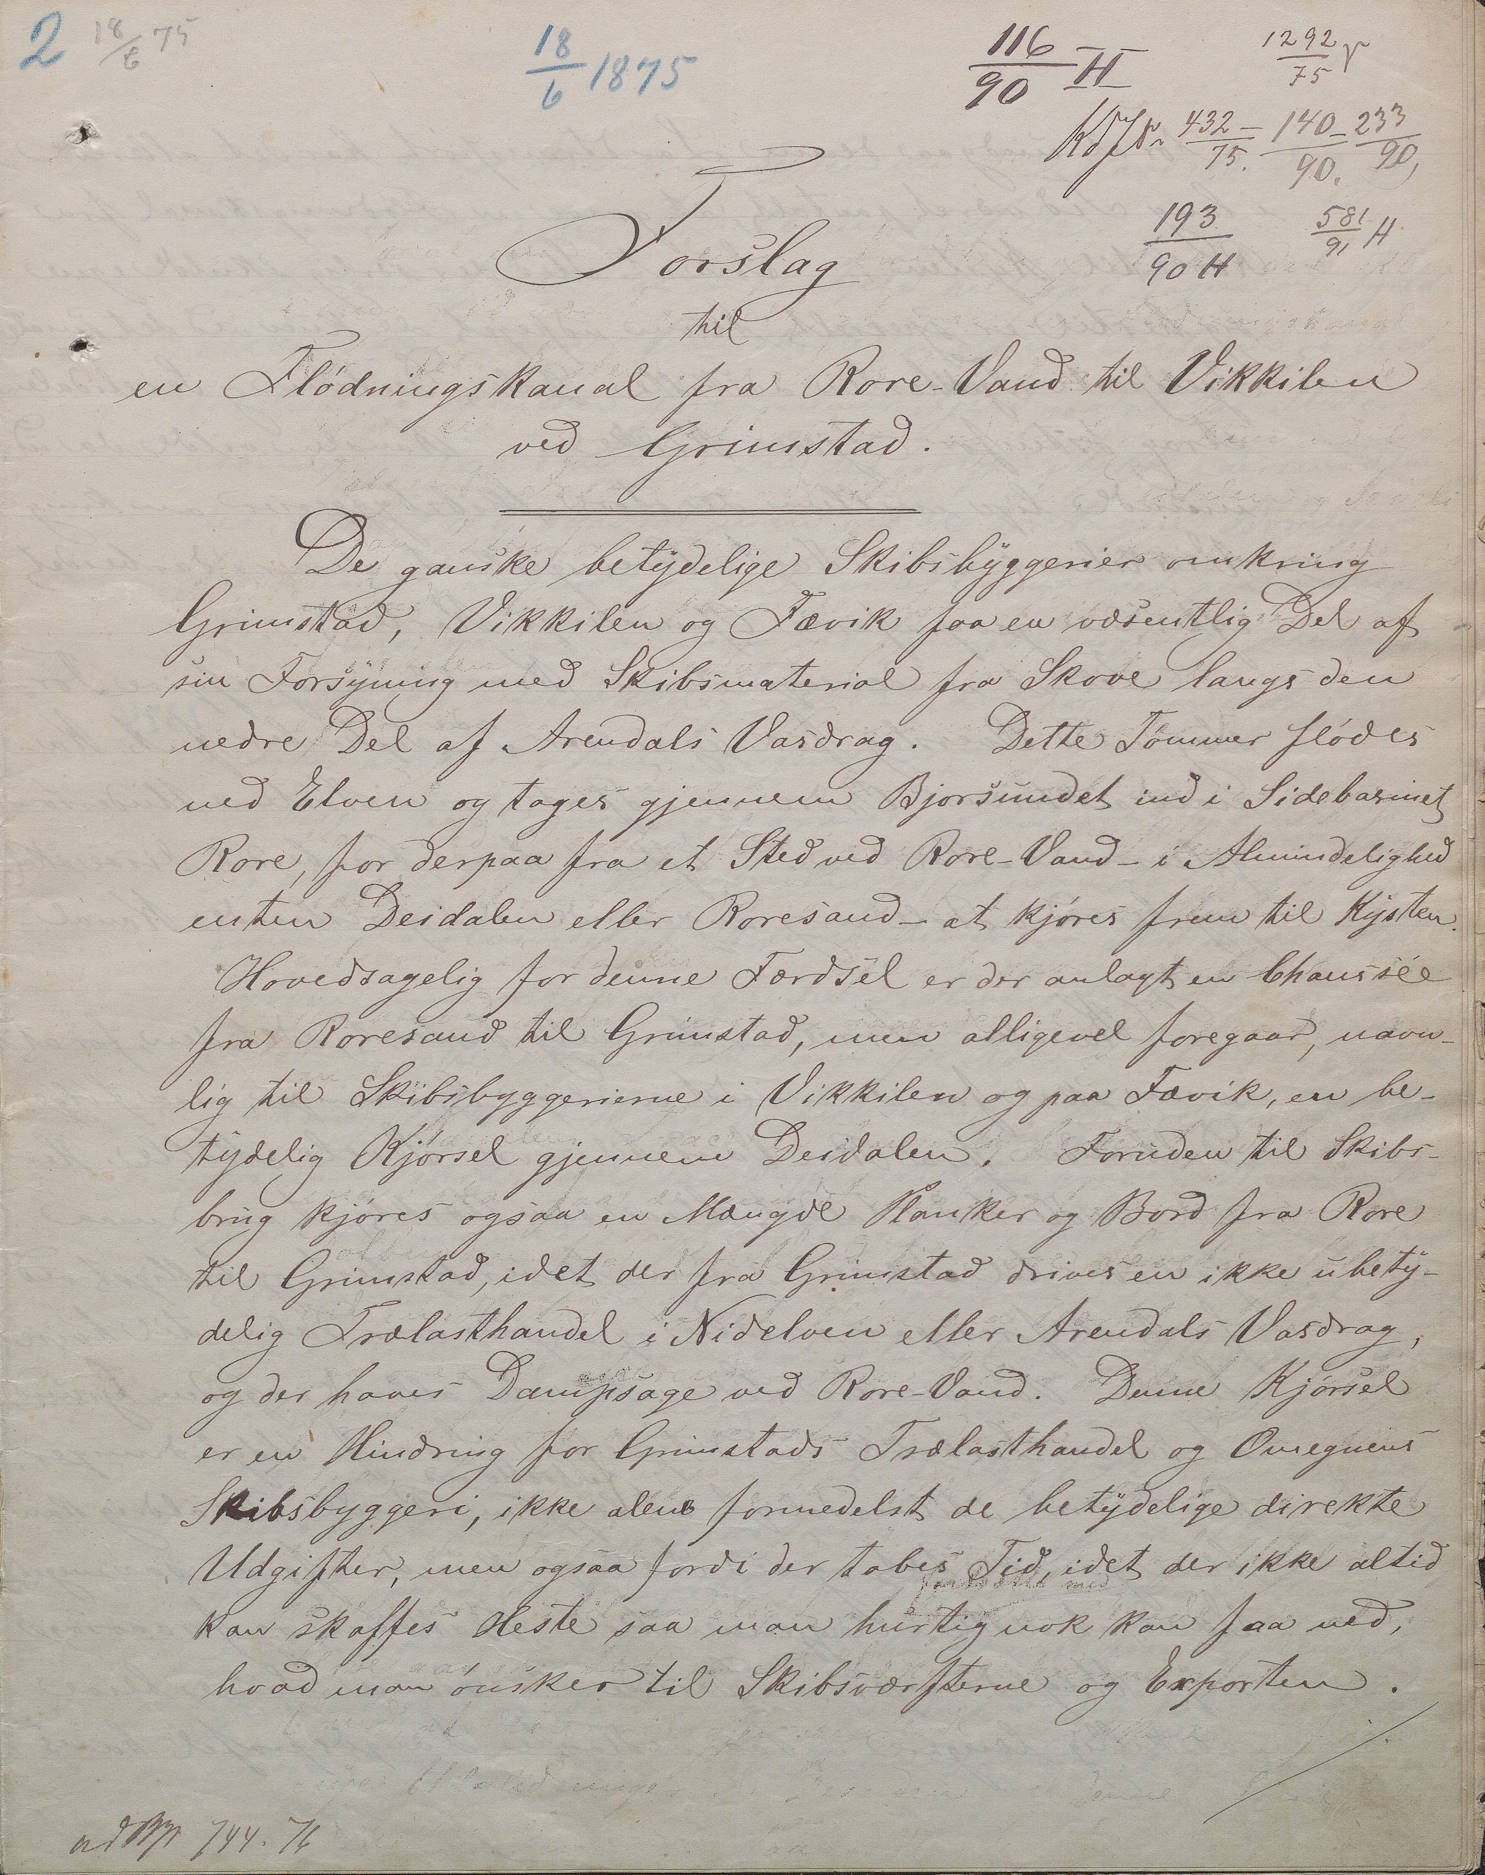 2 18/6 75
18/6 1875
116/90 H
1292/75
432/75. – 140/90. – 233/90,
193/90 H
581/91 H
Forslag
til
en Flódningskanal fra Rore-Vand til Vikkilen
ved Grimstad.
De ganske betydelige Skibsbyggerier omkring
Grimstad, Vikkilen og Fævik faa en væsentlig Del af
sin Forsyning med Skibsmaterial fra Skove langs den
nedre Del af Arendals Vasdrag. Dette Tømmer flódes
ned Elven og tages gjennem Bjorsundet ind i Sidebasinet
Rore, for derpaa fra et Sted ved Rore-Vand – i Almindelighed
enten Deidalen eller Roresand – at kjóres frem til Kysten.
Hovedsagelig for denne Færdsel er der anlagt en Chaussée
fra Roresand til Grimstad, men alligevel foregaar, navn-
lig til Skibsbyggerierne i Vikkilen og paa Fævik, en be-
tydelig Kjórsel gjennem Deidalen. Foruden til Skibs-
brug kjóres ogsaa en Mængde Planker og Bord fra Rore
til Grimstad, idet der fra Grimstad drives en ikke ubety-
delig Trælasthandel i Nidelven eller Arendals Vasdrag,
og der haves Dampsage ved Rore-Vand. Denne Kjórsel
er en Hindring for Grimstads Trælasthandel og Omegnens
Skibsbyggeri, ikke alene formedelst de betydelige direkte
Udgifter, men ogsaa fordi der tabes Tid, idet der ikke altid
kan skaffes Heste saa man hurtig nok kan faa ned,
hvad man ónsker til Skibsværfterne og Exporten.
744. 76